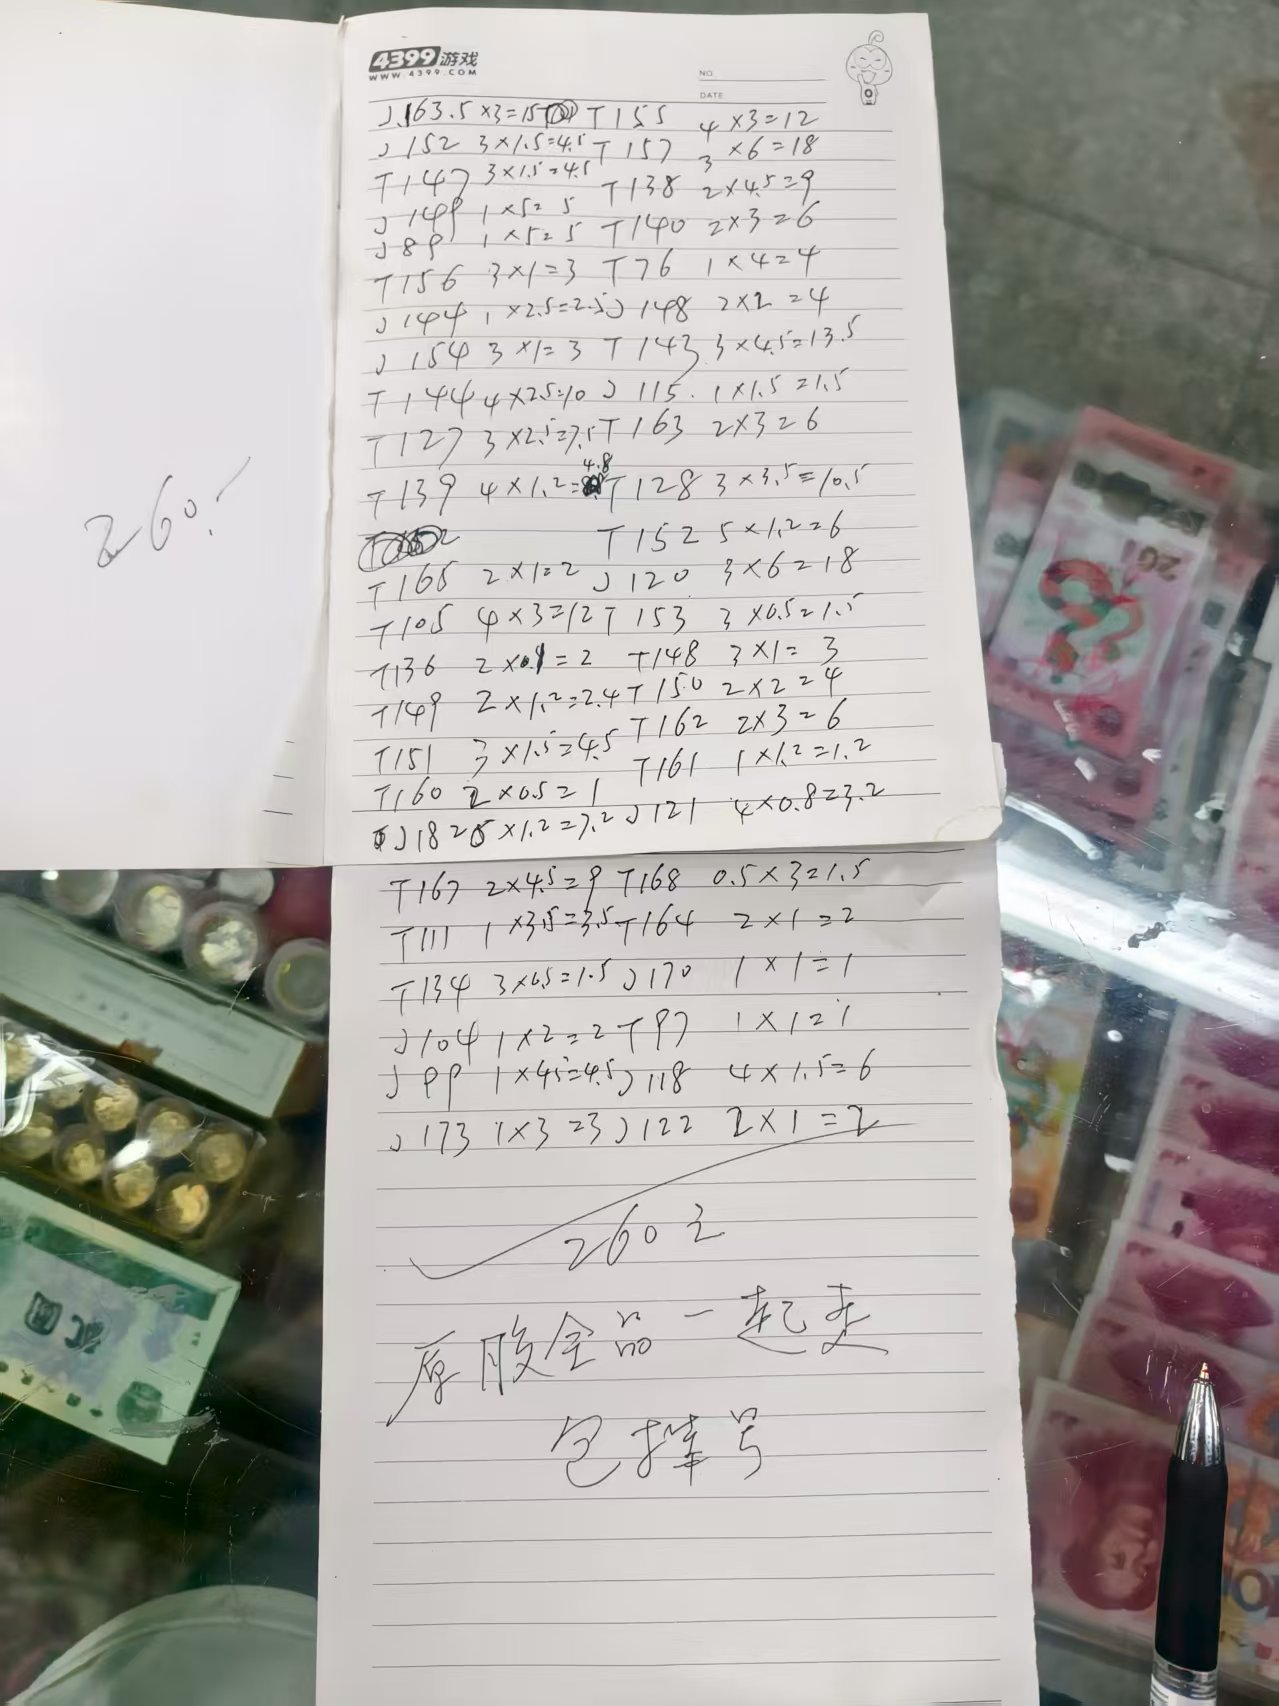 4399游戏
WWW.4399.COM
NO.
DATE
J163.5×3=15 T155 4×3=12
J152 3×1.5=4.5 T157 3×6=18
T147 3×1.5=4.5 T138 2×4.5=9
J149 1×5=5 T140 2×3=6
J89 1×5=5
T156 3×1=3 T76 1×4=4
J144 1×2.5=2.5 J148 2×2=4
J154 3×1=3 T143 3×4.5=13.5
T144 4×2.5=10 J115. 1×1.5=1.5
T127 3×2.5=7.5 T163 2×3=6
T139 4×1.2=4.8 T128 3×3.5=10.5
T152 5×1.2=6
T165 2×1=2 J120 3×6=18
T105 4×3=12 T153 3×0.5=1.5
T136 2×1=2 T148 3×1=3
T149 2×1.2=2.4 T150 2×2=4
T151 3×1.5=4.5 T162 2×3=6
T160 2×0.5=1 T161 1×1.2=1.2
J182 6×1.2=7.2 J121 4×0.8=3.2
T167 2×4.5=9 T168 0.5×3=1.5
T111 1×3.5=3.5 T164 2×1=2
T134 3×0.5=1.5 J170 1×1=1
J104 1×2=2 T97 1×1=1
J99 1×4.5=4.5 J118 4×1.5=6
J173 1×3=3 J122 2×1=2
260元
原胶全品一起走
包挂号
260.-
20